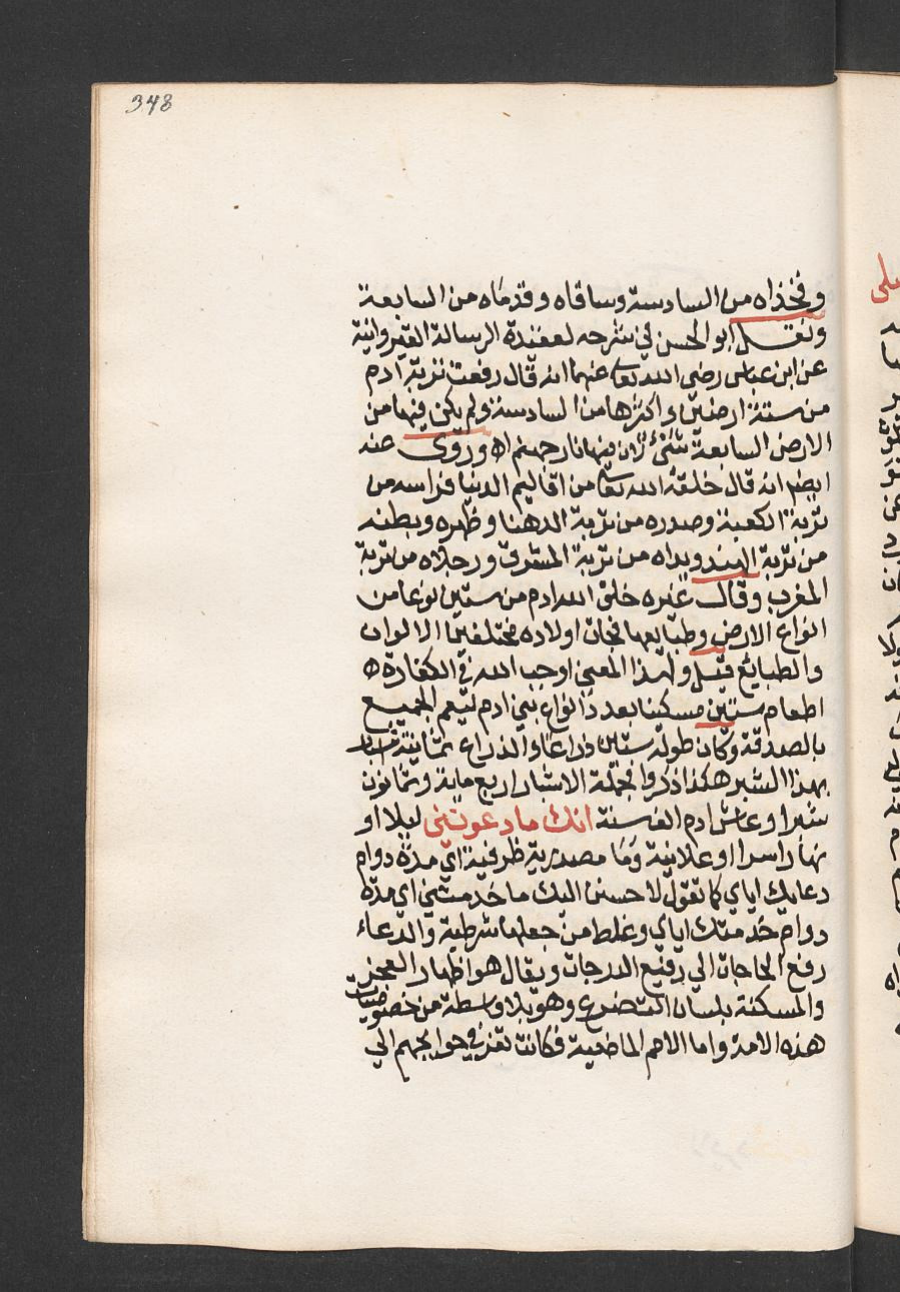 348
وفخذاه من السادسة وساقاه وقدماه من السابعة
ونقل ابو الحسن في شرحه لعقيدة الرسالة القيروانية
عن ابن عباس رضي الله تعا عنهما انه قال رفعت تربة ادم
من ستة ارضين واكثرها من السادسة ولم يكن فيها من
الارض السابعة شئ لان فيها نار جهنم اه وروى عنه
ايضا انه قال خلقه الله تعا من اقاليم الدنيا فراسه من
تربة الكعبة وصدره من تربة الدهنا وظهره وبطنه
من تربة الهند ويداه من تربة المشرق ورجلاه من تربة
المغرب وقال غيره خلق الله ادم من ستين نوعا من
انواع الارض وطبايعها فجات اولاده مختلفين الالوان
والطبايع قيل ولهذا المعنى اوجب الله في الكفارة
اطعام ستين مسكينا بعدد انواع بني ادم ليعم الجميع
بالصدقة وكان طوله ستين ذراعا الذراع ثمانية اشبار
بهذا الشبر هكذا ذكروا فجملة الاشبار اربع ماية وثمانون
شبرا وعاش ادم الف سنة انك ما دعوتني ليلا او
نهارا سرا او علانية وما مصدرية ظرفية اي مدة دوام
دعايك اياي كما تقول لاحسنن اليك ما خدمتني اي مدة
دوام خدمتك اياي وغلط من جعلها شرطية والدعاء
رفع الحاجات الى رفيع الدرجات ويقال هو اظهار العجز
والمسكنة بلسان التضرع وهو بلا واسطة من خصوصيات
هذه الامة واما الامم الماضية فكانت تفزع في حوايجهم الى